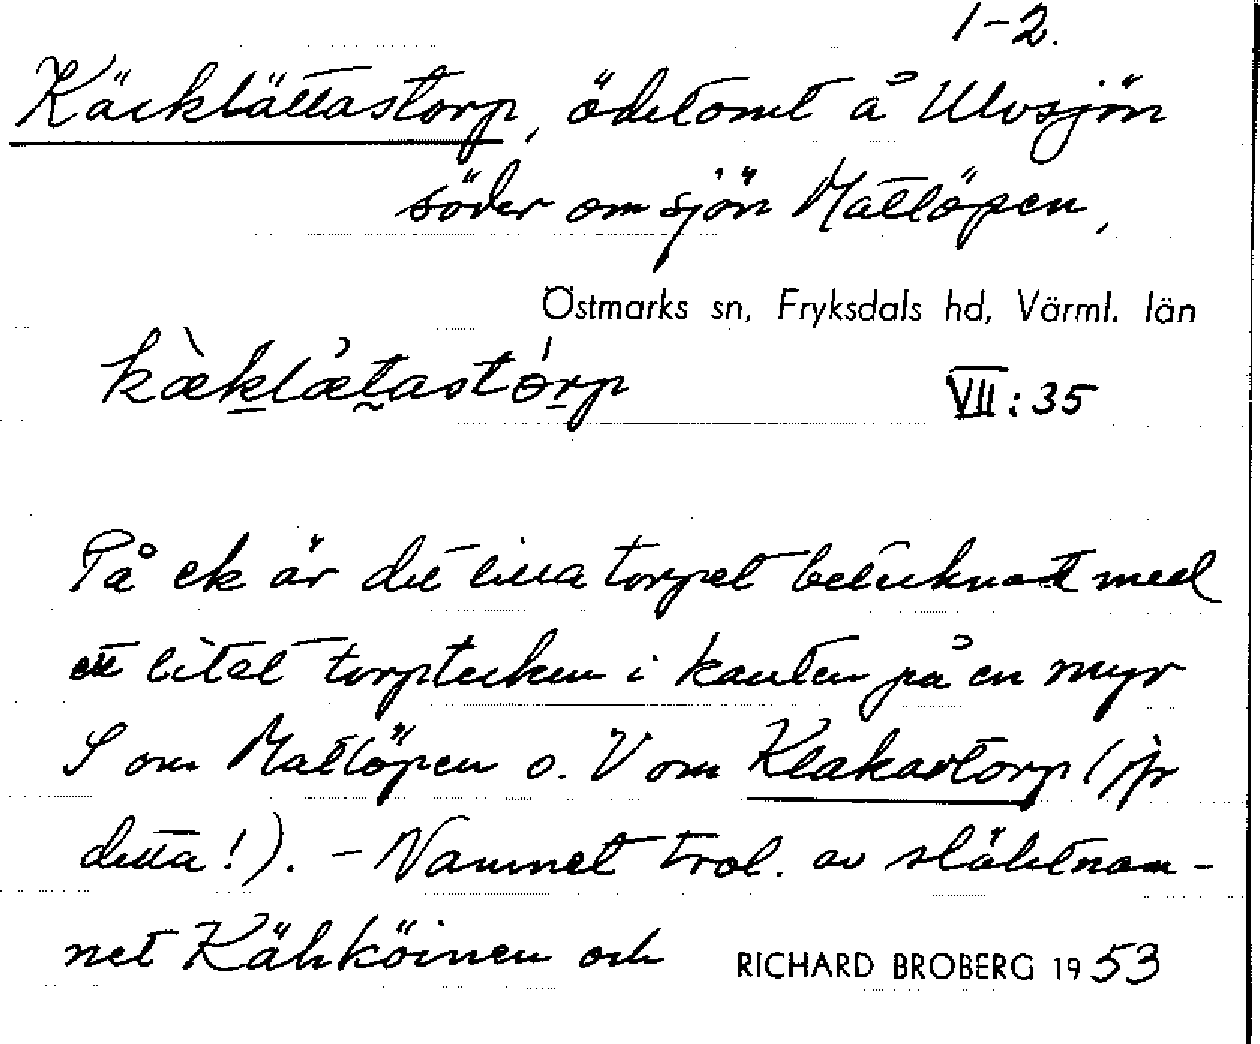 1-2.
Käcklättastorp, ödetomt å Ulvsjön
söder om sjön Matlöpen,
Östmarks sn, Fryksdals hd, Värml. län
kæ̀klætastórp VII:35
På ek är det lilla torpet betecknatt med
ett litet torptecken i kanten på en myr
S om Matlöpen o. V om Klakastorp (jfr
detta!). - Namnet trol. av släktnam-
net Kähköinen och RICHARD BROBERG 1953